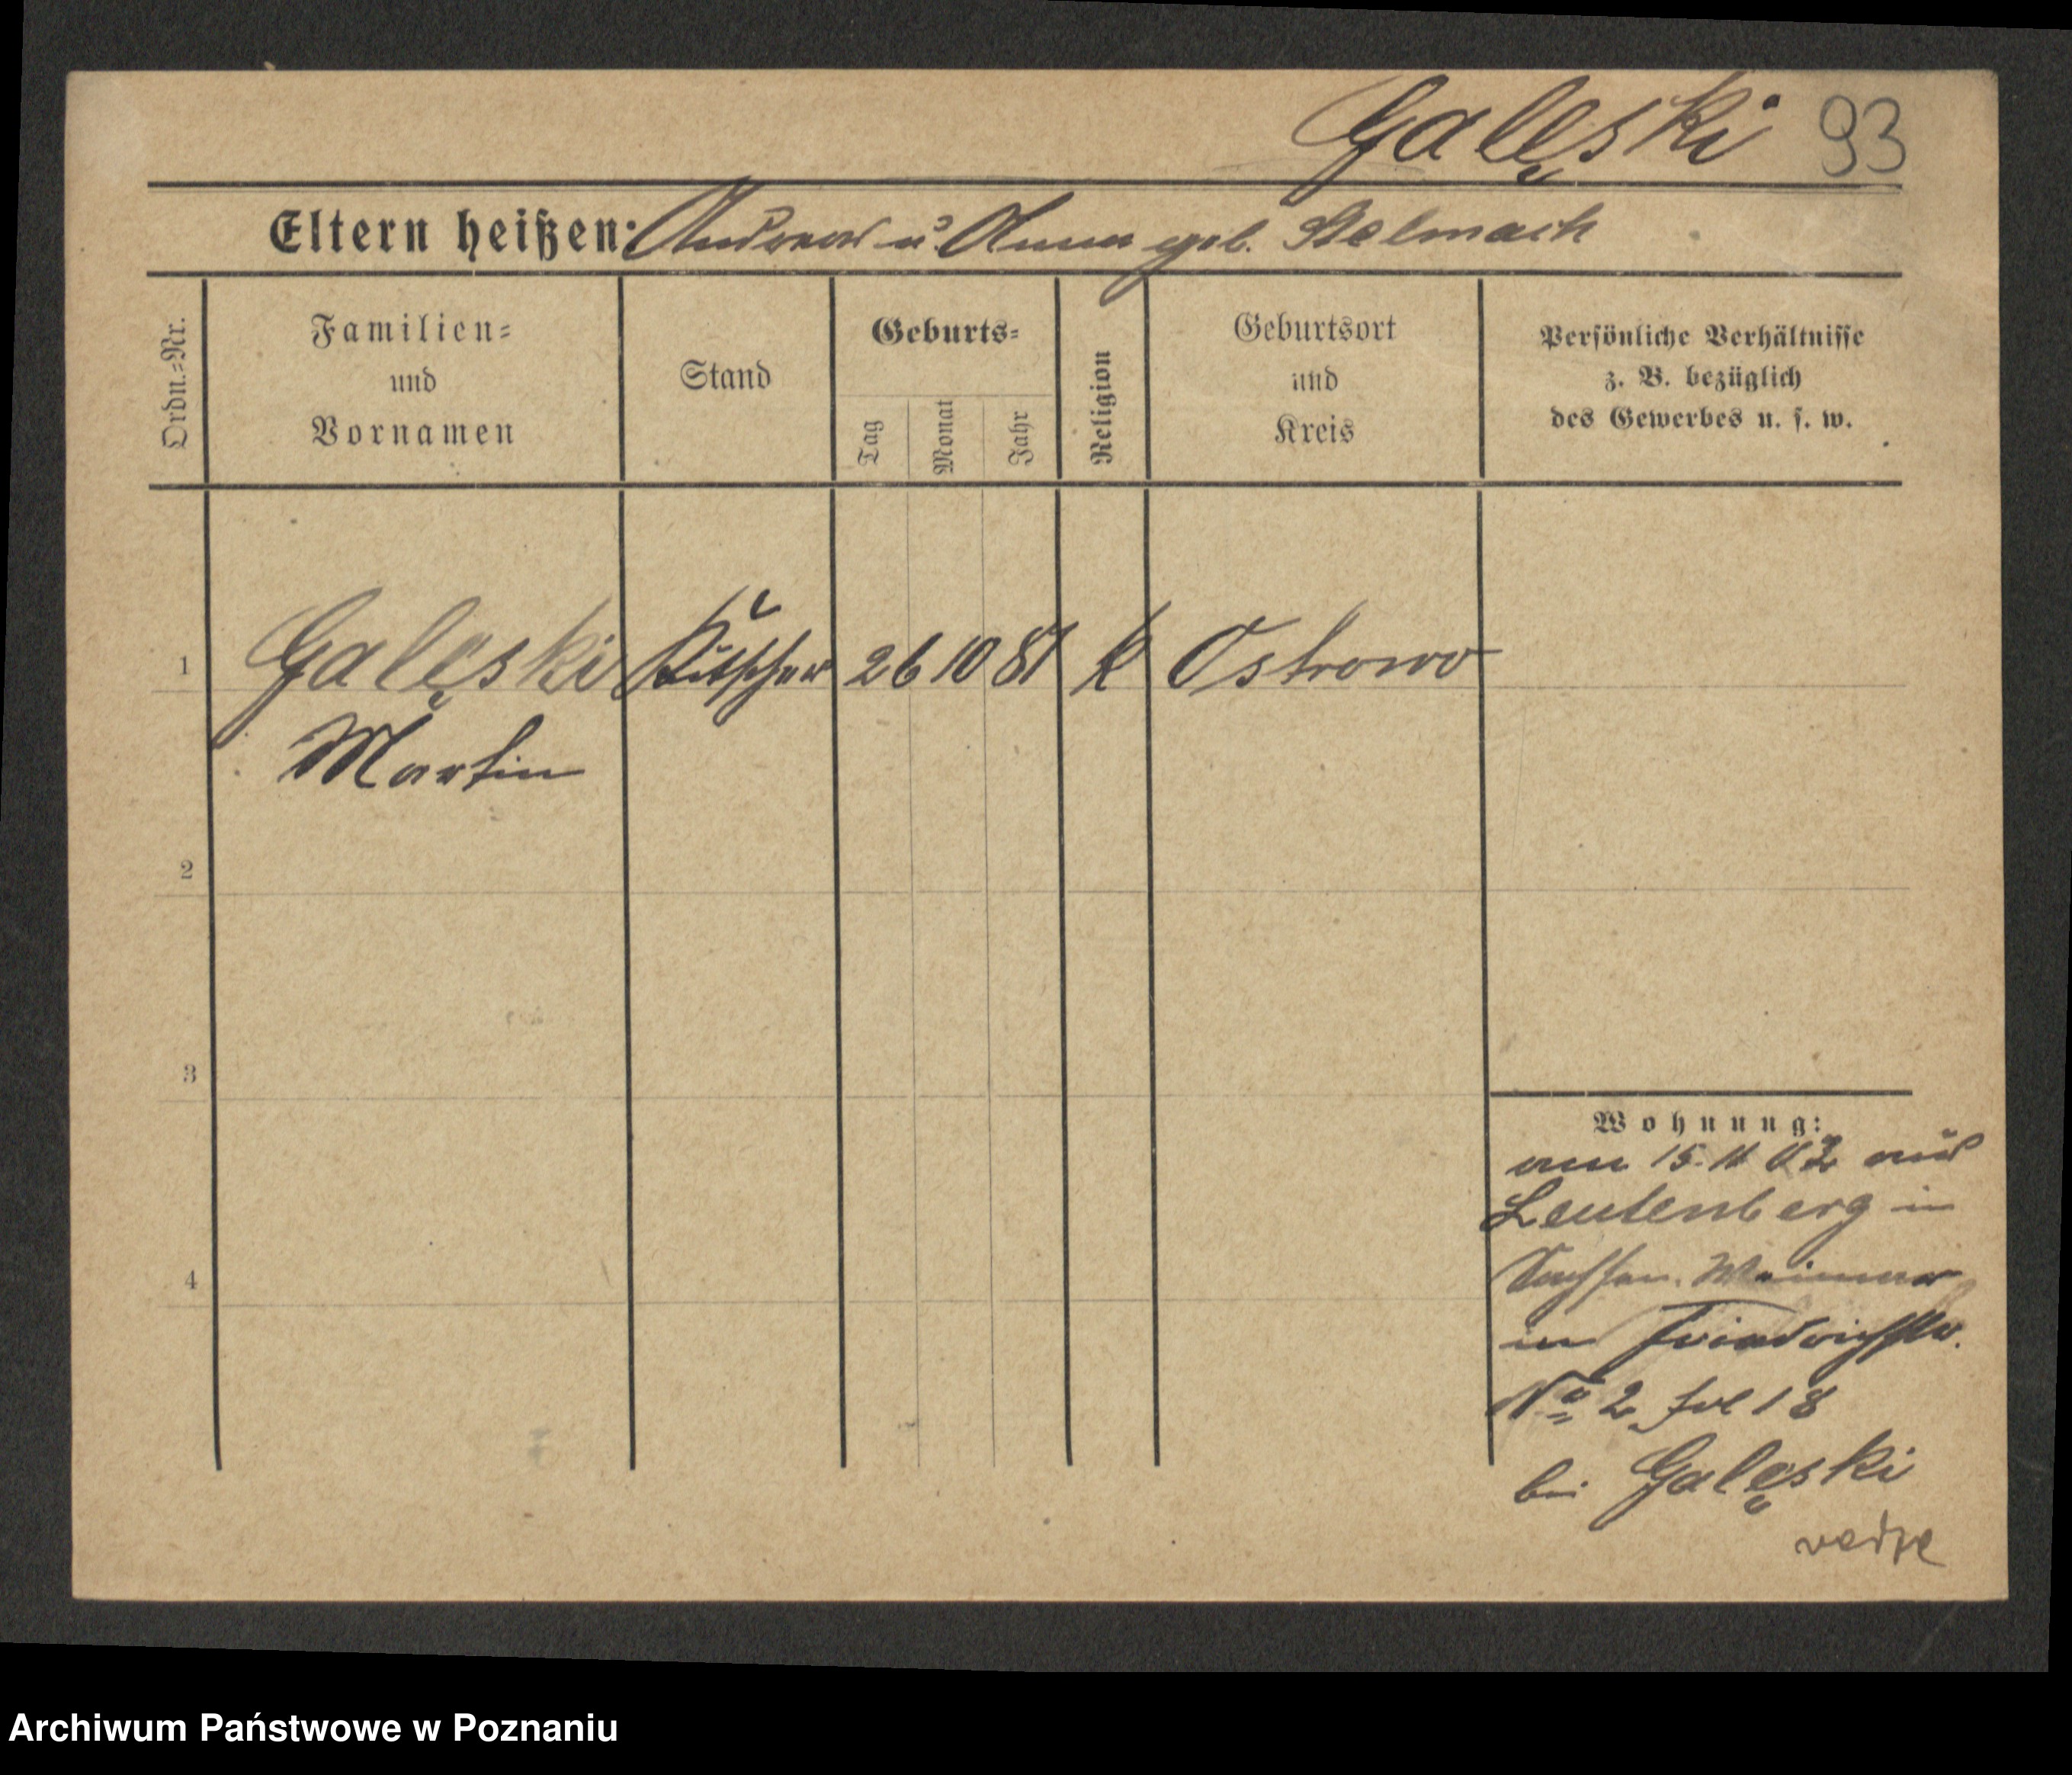 Galęski 93
Eltern heißen: Andreas u. Anna geb. Stelmach
Ordn.=Nr.
Familien=
und
Vornamen
Stand
Geburts=
Tag
Monat
Jahr
Religion
Geburtsort
und
Kreis
Persönliche Verhältnisse
z. B. bezüglich
des Gewerbes u. s. w.
1 Galęski Kutscher 26 10 81 k Ostrowo
Martin
2
3
4
Wohnung:
am 15. 11 02 aus
Leutenberg in
Sachsen. Weimar
in Friedrichstr.
No 2 fol 18
bei Galęski
Archiwum Państwowe w Poznaniu